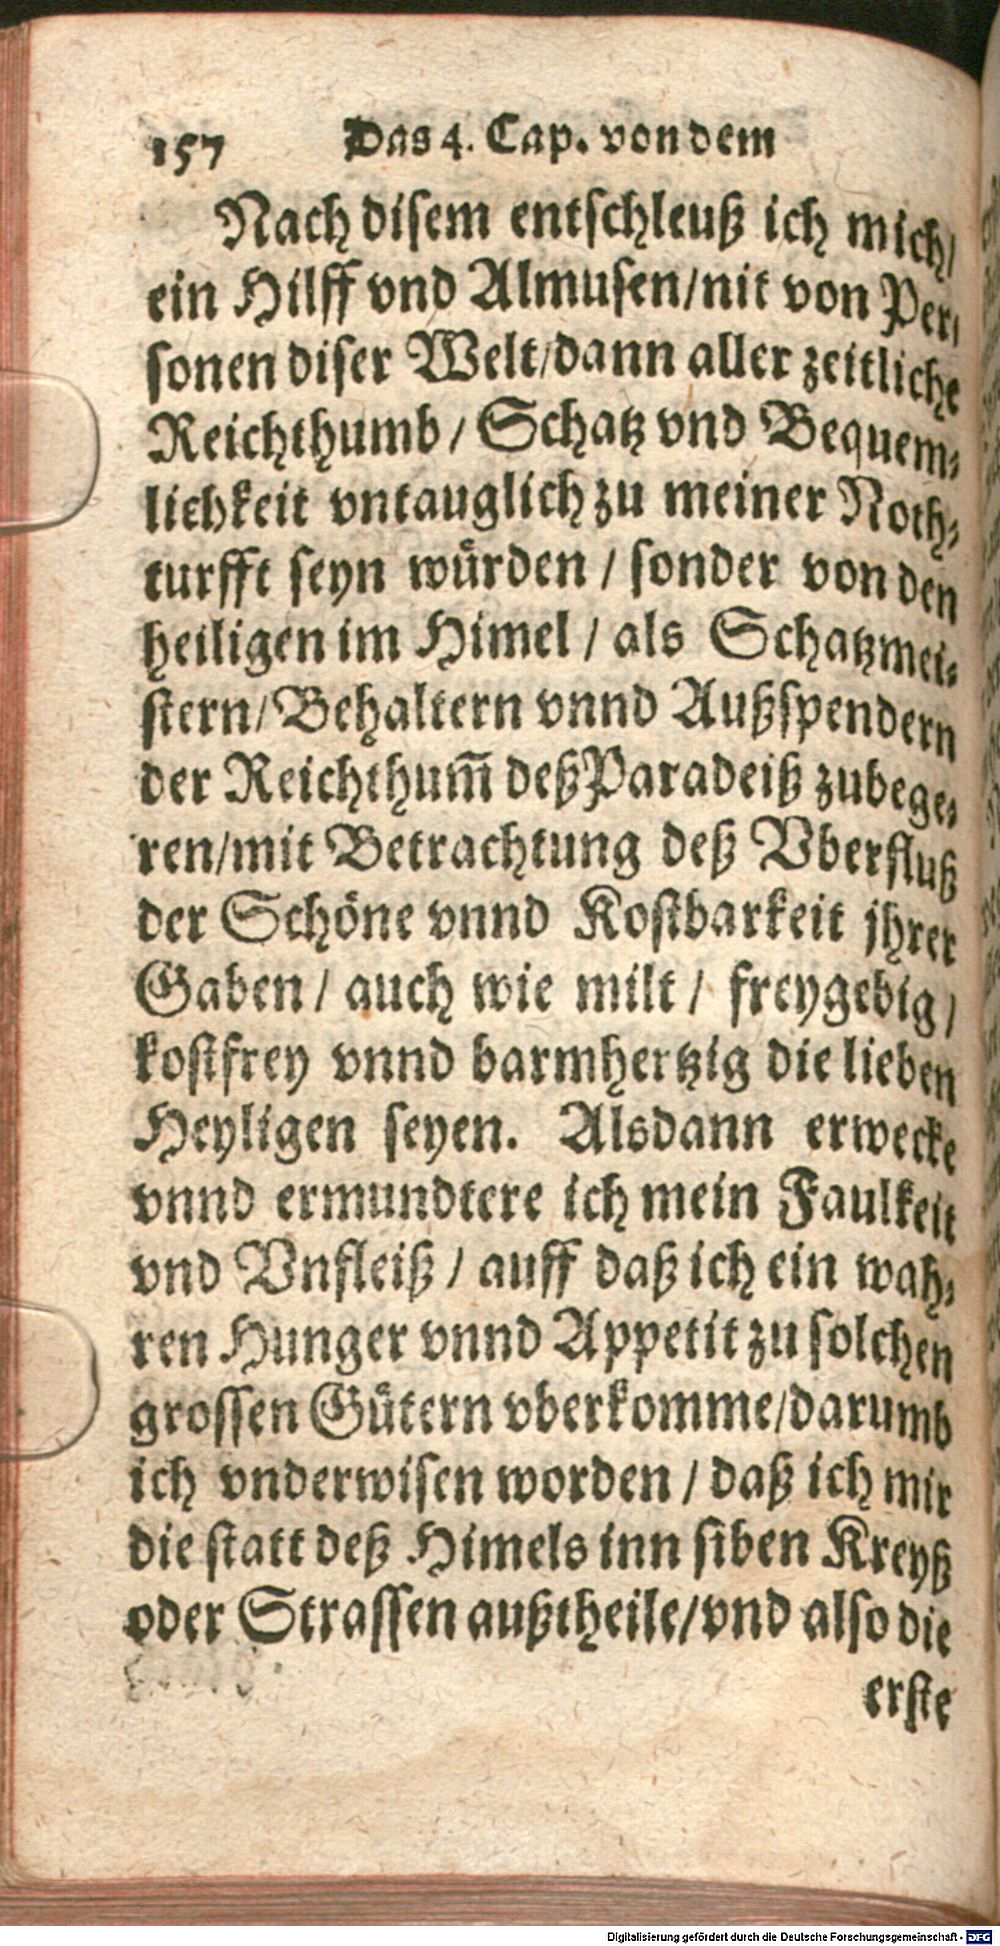 157 Das 4. Cap. von dem
Nach disem entschleuß ich mich/
ein Hilff vnd Almusen/nit von Per⸗
sonen diser Welt/dann aller zeitliche
Reichthumb/ Schatz vnd Bequem⸗
lichkeit vntauglich zu meiner Noth⸗
turfft seyn wuͤrden / sonder von den
heiligen im Himel / als Schatzmei⸗
stern/Behaltern vnnd Außspendern
der Reichthum̃ deß Paradeiß zubege⸗
ren/mit Betrachtung deß Vberfluß
der Schoͤne vnnd Kostbarkeit jhrer
Gaben / auch wie milt / freygebig /
kostfrey vnnd barmhertzig die lieben
Heyligen seyen. Alsdann erwecke
vnnd ermundtere ich mein Faulkeit
vnd Vnfleiß / auff daß ich ein wah⸗
ren Hunger vnnd Appetit zu solchen
grossen Guͤtern vberkomme/darumb
ich vnderwisen worden / daß ich mir
die statt deß Himels inn siben Kreyß
oder Strassen außtheile/vnd also die
erste
Digitalisierung gefördert durch die Deutsche Forschungsgemeinschaft - DFG